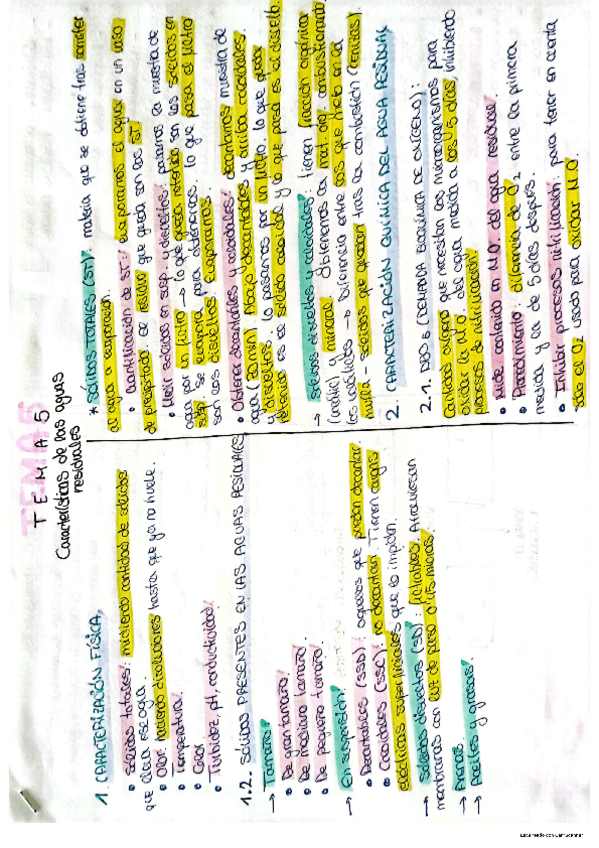 TEMA 5
Características de las aguas
residuales
1. CARACTERIZACIÓN FÍSICA
• Sólidos totales: midiendo cantidad de sólidos
que lleva ese agua.
• Olor: haciendo diluciones hasta que ya no huele.
• Temperatura
• Color
• Turbidez, pH, conductividad.
1.2. SÓLIDOS PRESENTES EN LAS AGUAS RESIDUALES
→ Tamaño
• De gran tamaño.
• De mediano tamaño.
• De pequeño tamaño.
→ En suspensión:
• Decantables (SSD): aquellos que pueden decantar.
• Coloidales (SSC): no decantan. Tienen cargas
eléctricas superficiales que lo impiden.
→ Sólidos disueltos (SD): filtrables. Atraviesan
membranas con luz de paso micras.
→ Arenas
→ Aceites y grasas.
* SÓLIDOS TOTALES (ST): materia que se obtiene tras someter
al agua a evaporación.
• Cuantificación de ST: evaporamos el agua en un vaso
de precipitado se residuo que queda son los ST.
• Medir sólidos en susp. y disueltos: pasamos la muestra de
agua por un filtro → lo que queda retenido son los sólidos en
susp. se evapora para obtenerlos. lo que pasa el filtro
son los disueltos evaporamos.
• Obtener decantables y coloidales: decantamos muestra de
agua (30min) abajo decantables y arriba coloidales
y disueltos. lo pasamos por un filtro, lo que queda
retenido es el sólido coloidal y lo que pasa es el disuelto.
→ Sólidos disueltos y coloidales: tienen fracción orgánica
(volátil) y mineral. Obtenemos la mat. org. combustionando
los volátiles → Diferencia entre SDS que había en la
- sólidos que quedan tras la combustión (cenizas).
2. CARACTERIZACIÓN QUÍMICA DEL AGUA RESIDUAL
2.1. DBO5 (DEMANDA BIOQUÍMICA DE OXÍGENO):
Cantidad oxígeno que necesitan los microorganismos para
oxidar la M.O. del agua medida a los 5 días, inhibiendo
procesos de nitrificación.
• Mide contenido en M.O. del agua residual.
• Procedimiento: diferencia de O2 entre la primera
medida y la de 5 días después.
• Inhibir procesos nitrificación: para tener en cuenta
sólo el O2 usado para oxidar M.O.
Escaneado con CamScanner